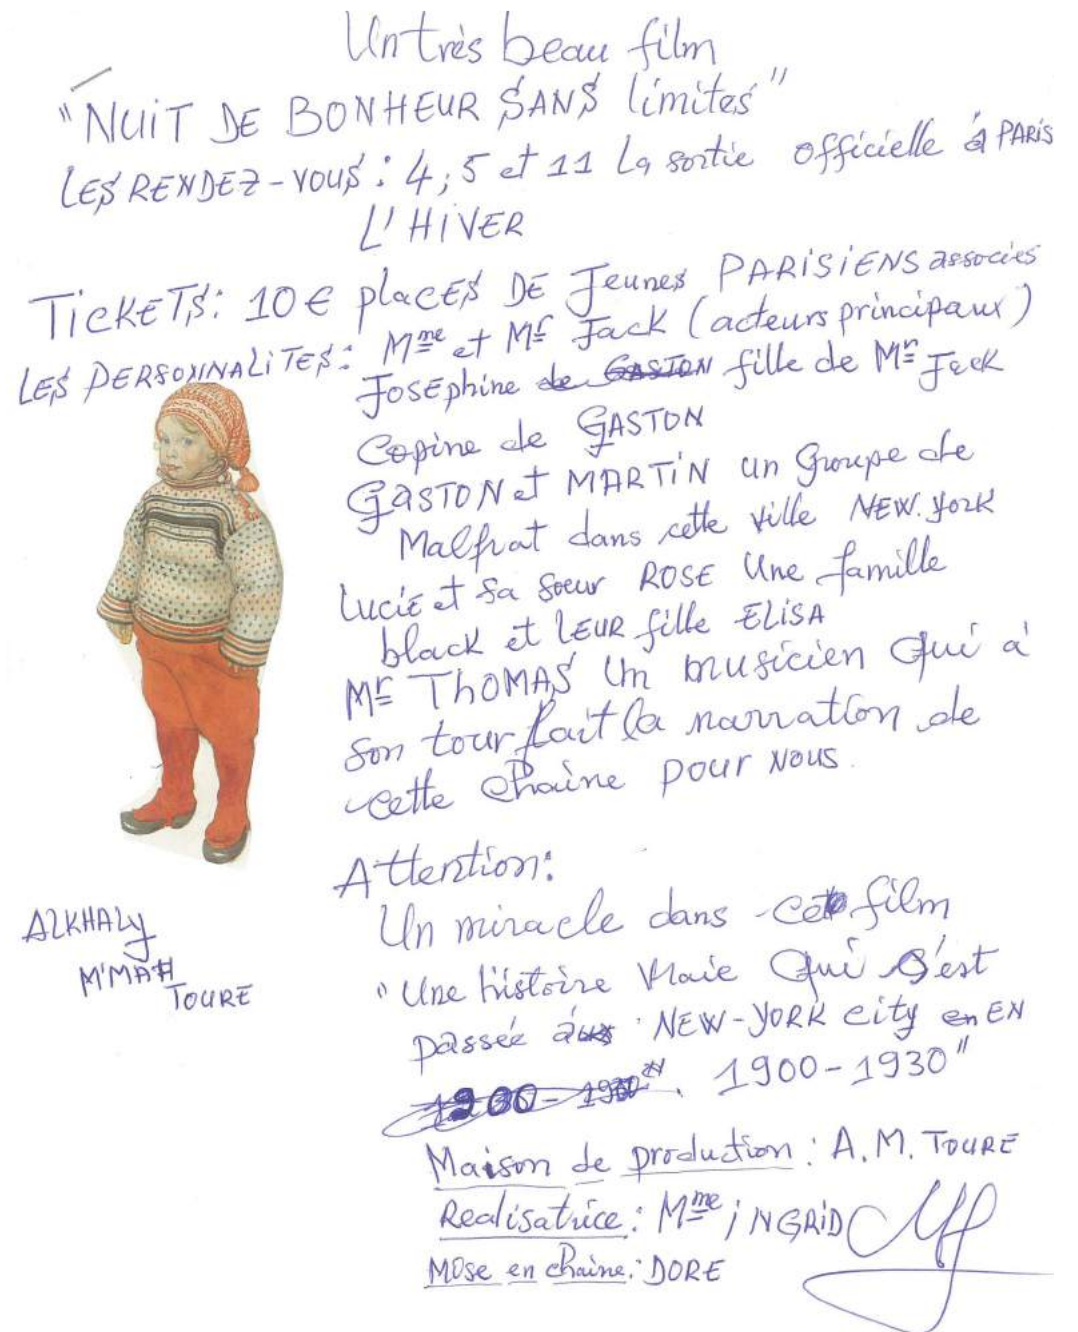 Un très beau film
"NUIT DE BONHEUR SANS limites"
LES RENDEZ-VOUS: 4, 5 et 11 La sortie officielle à PARIS
L'HIVER
TICKETS: 10€ places DE Jeunes PARISIENS associés
LES PERSONNALITES: Mme et Mr Jack (acteurs principaux)
Josephine de GASTON fille de Mr Jack
Copine de GASTON
GASTON et MARTIN un Groupe de
Malfrat dans cette ville NEW.York
Lucie et sa soeur ROSE Une famille
black et LEUR fille ELISA
Mr THOMAS Un musicien Qui à
son tour fait la narration de
cette Chaine pour NOUS.
Attention:
Un miracle dans cet film
"Une histoire Vraie Qui s'est
passée à NEW-YORK city en EN
1900-1930". 1900-1930"
ALKHALY
M'MAH
TOURE
Maison de production: A.M. TOURE
Realisatrice: Mme iNGRID
MOse en chaine: DORE